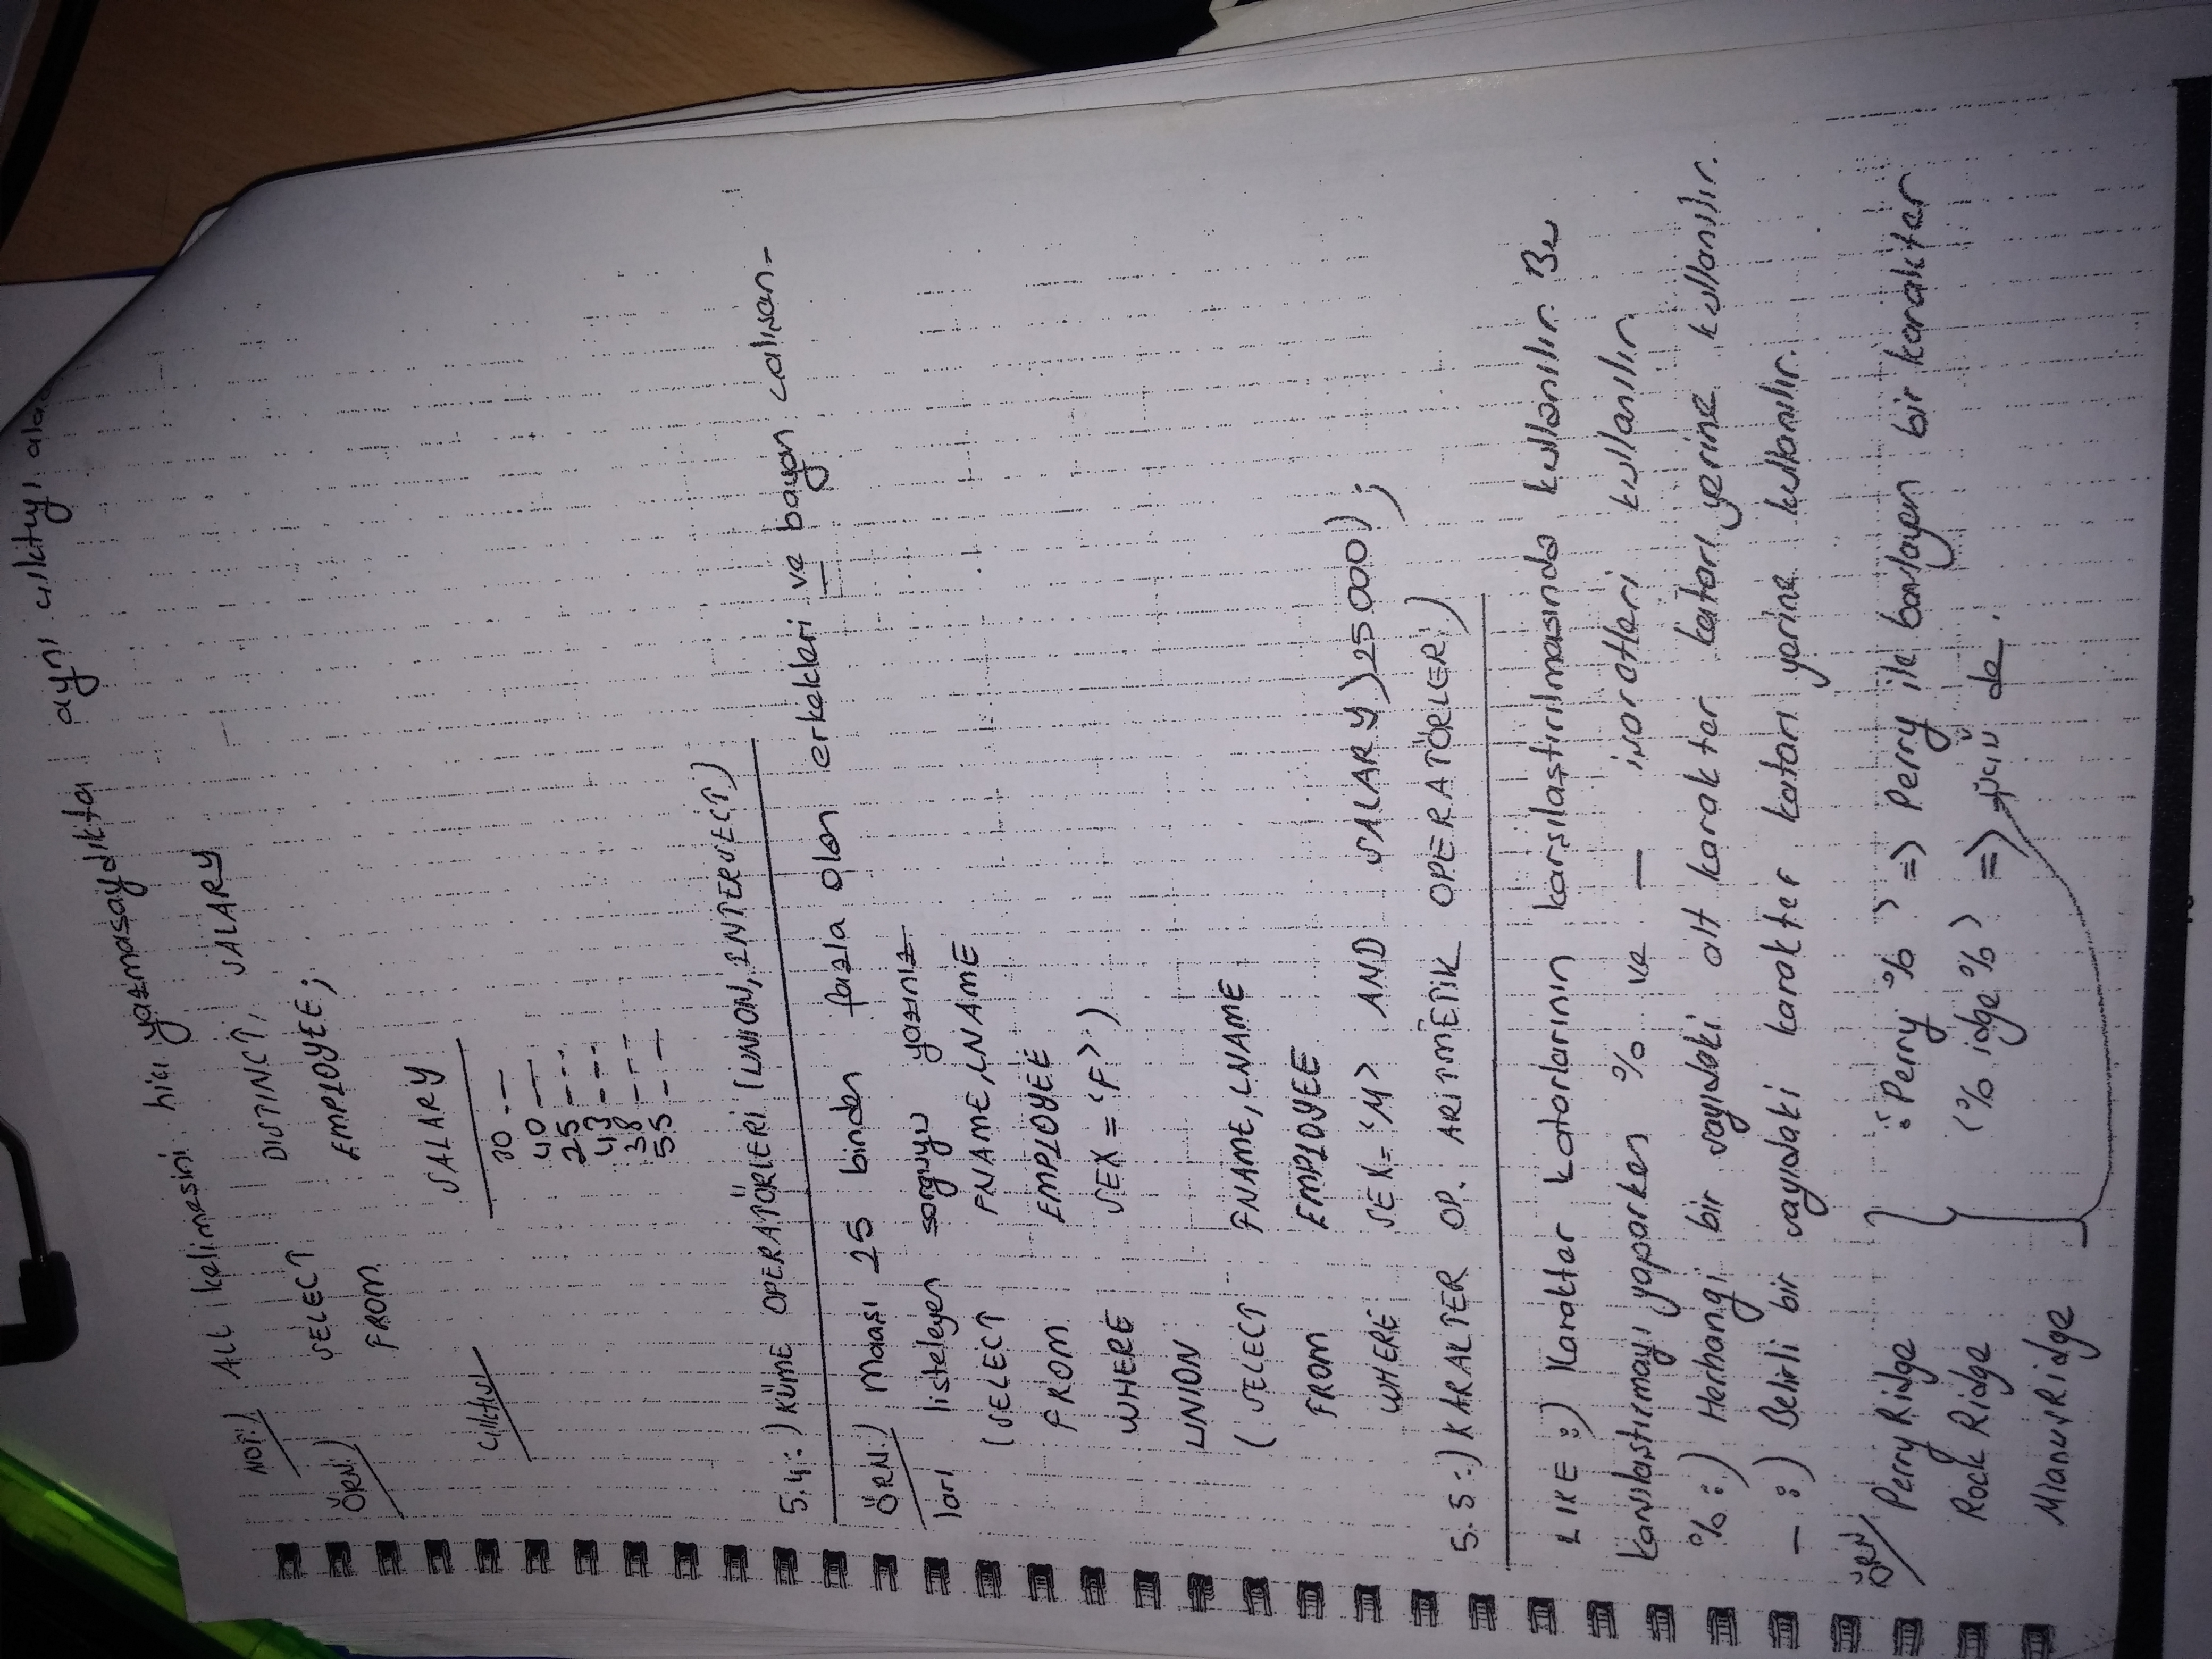 NOT:) ALL kelimesini hiç yazmasaydıkta aynı çıktıyı
ÖRN:) SELECT DISTINCT, SALARY
FROM EMPLOYEE;
Çıktısı SALARY
30 ---
40 ---
25 ---
43 ---
38 ---
55 ---
5.4:) KÜME OPERATÖRLERİ (UNION, INTERSECT)
ÖRN:) Maaşı 25 binden fazla olan erkekleri ve bayan çalışan-
ları listeleyen sorguyu yazınız
(SELECT FNAME, LNAME
FROM EMPLOYEE
WHERE SEX = 'F')
UNION
(SELECT FNAME, LNAME
FROM EMPLOYEE
WHERE SEX = 'M' AND SALARY > 25000);
5.5:) KARAKTER OP. ARİTMETİK OPERATÖRLERİ)
LIKE :) Karakter katarlarının karşılaştırılmasında kullanılır. Bu
karşılaştırmayı yaparken % ve _ işaretleri kullanılır.
% :) Herhangi bir sayıdaki alt karakter katarı yerine kullanılır.
_ :) Belirli bir sayıdaki karakter katarı yerine kullanılır.
ÖRN
Perry Ridge 'Perry %' => Perry ile başlayan bir karakter
Rock Ridge '% idge %' => üçü de.
Mianus Ridge